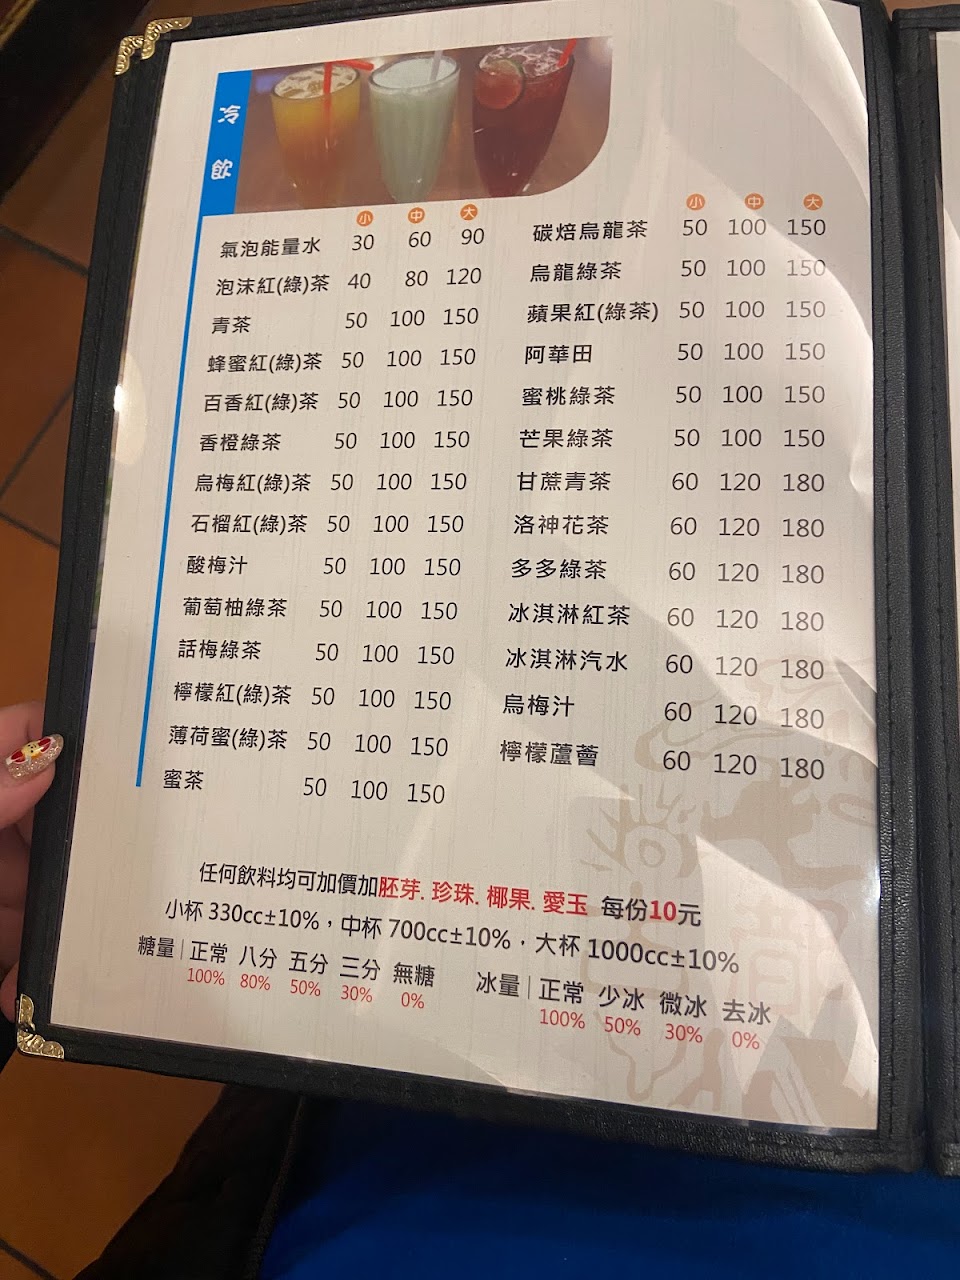 冷飲
小 中 大
氣泡能量水 30 60 90
泡沫紅(綠)茶 40 80 120
青茶 50 100 150
蜂蜜紅(綠)茶 50 100 150
百香紅(綠)茶 50 100 150
香橙綠茶 50 100 150
烏梅紅(綠)茶 50 100 150
石榴紅(綠)茶 50 100 150
酸梅汁 50 100 150
葡萄柚綠茶 50 100 150
話梅綠茶 50 100 150
檸檬紅(綠)茶 50 100 150
薄荷蜜(綠)茶 50 100 150
蜜茶 50 100 150
小 中 大
碳焙烏龍茶 50 100 150
烏龍綠茶 50 100 150
蘋果紅(綠茶) 50 100 150
阿華田 50 100 150
蜜桃綠茶 50 100 150
芒果綠茶 50 100 150
甘蔗青茶 60 120 180
洛神花茶 60 120 180
多多綠茶 60 120 180
冰淇淋紅茶 60 120 180
冰淇淋汽水 60 120 180
烏梅汁 60 120 180
檸檬蘆薈 60 120 180
任何飲料均可加價加胚芽. 珍珠. 椰果. 愛玉 每份10元
小杯 330cc±10%，中杯 700cc±10%．大杯 1000cc±10%
糖量｜正常 八分 五分 三分 無糖
100% 80% 50% 30% 0%
冰量｜正常 少冰 微冰 去冰
100% 50% 30% 0%